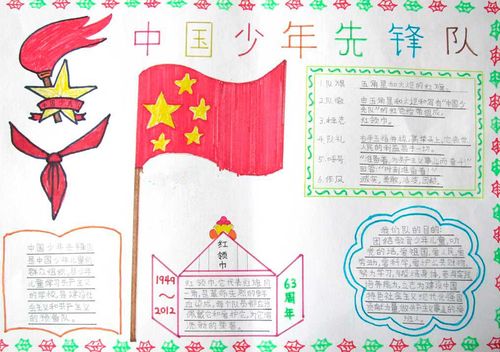 中国少年先锋队
1.队旗 五角星加火炬的红旗。
2.队徽 由五角星加火炬和写有"中国少
先队"的红色绶带组成。
3.标志 红领巾。
4.队礼
人民的利益高于一切。
5.呼号 "准备着,为共产主义事业而奋斗!"
回答:"时刻准备着!"
6.作风 诚实、勇敢、活泼、团结。
中国少年先锋队
是中国少年儿童的
群众组织,是少年
儿童学习共产主义
的学校,是建设社
会主义和共产主义
的预备队。
红领巾
1949~2012
63周年
红领巾,它代表红旗的
一角,是革命先烈的鲜
血染成。每个队员都应当
佩戴它和爱护它,为它增
添新的荣誉。
我们队的目的:
团结教育少年儿童,听
党的话,爱祖国,爱人民,爱
劳动,爱科学,爱护公共财物,
努力学习,锻炼身体,
培养能力,立志为建设中国
特色社会主义现代化强国
贡献力量,做共产主义事业的接
班人。